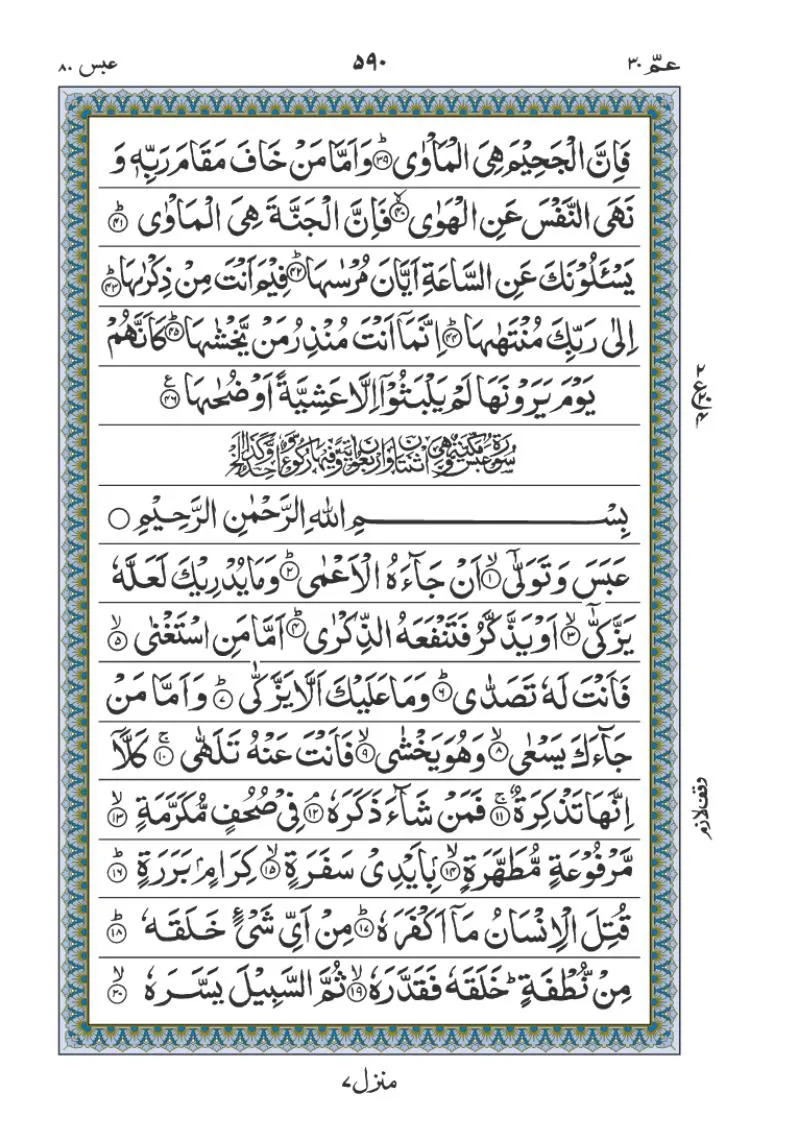 عمّ ۳۰
۵۹۰
عبس ۸۰
فَاِنَّ الْجَحِیْمَ هِیَ الْمَاْوٰیؕ۝۳۹ وَاَمَّا مَنْ خَافَ مَقَامَ رَبِّهٖ وَ
نَهَی النَّفْسَ عَنِ الْهَوٰیۙ۝۴۰ فَاِنَّ الْجَنَّةَ هِیَ الْمَاْوٰیؕ۝۴۱
یَسْـَٔلُوْنَكَ عَنِ السَّاعَةِ اَیَّانَ مُرْسٰىهَاؕ۝۴۲ فِیْمَ اَنْتَ مِنْ ذِكْرٰىهَاؕ۝۴۳
اِلٰی رَبِّكَ مُنْتَهٰىهَاؕ۝۴۴ اِنَّمَاۤ اَنْتَ مُنْذِرُ مَنْ یَّخْشٰىهَاؕ۝۴۵ كَاَنَّهُمْ
یَوْمَ یَرَوْنَهَا لَمْ یَلْبَثُوْۤا اِلَّا عَشِیَّةً اَوْ ضُحٰىهَا۝۴۶ ع
سُوْرَةُ عَبَسَ مَكِّیَّةٌ وَّهِیَ اثْنَتَانِ وَاَرْبَعُوْنَ اٰیَةً وَّفِیْهَا رُكُوْعٌ وَّاحِدٌ
بِسْمِ اللهِ الرَّحْمٰنِ الرَّحِیْمِ ○
عَبَسَ وَ تَوَلّٰۤیۙ۝۱ اَنْ جَآءَهُ الْاَعْمٰیؕ۝۲ وَمَا یُدْرِیْكَ لَعَلَّهٗ
یَزَّكّٰۤیۙ۝۳ اَوْ یَذَّكَّرُ فَتَنْفَعَهُ الذِّكْرٰیؕ۝۴ اَمَّا مَنِ اسْتَغْنٰیۙ۝۵
فَاَنْتَ لَهٗ تَصَدّٰیؕ۝۶ وَمَا عَلَیْكَ اَلَّا یَزَّكّٰیؕ۝۷ وَاَمَّا مَنْ
جَآءَكَ یَسْعٰیۙ۝۸ وَهُوَ یَخْشٰیۙ۝۹ فَاَنْتَ عَنْهُ تَلَهّٰیۚ۝۱۰ كَلَّاۤ
اِنَّهَا تَذْكِرَةٌۚ۝۱۱ فَمَنْ شَآءَ ذَكَرَهٗۘ۝۱۲ فِیْ صُحُفٍ مُّكَرَّمَةٍۙ۝۱۳
مَّرْفُوْعَةٍ مُّطَهَّرَةٍۭۙ۝۱۴ بِاَیْدِیْ سَفَرَةٍۙ۝۱۵ كِرَامٍۭ بَرَرَةٍؕ۝۱۶
قُتِلَ الْاِنْسَانُ مَاۤ اَكْفَرَهٗؕ۝۱۷ مِنْ اَیِّ شَیْءٍ خَلَقَهٗؕ۝۱۸
مِنْ نُّطْفَةٍؕ خَلَقَهٗ فَقَدَّرَهٗۙ۝۱۹ ثُمَّ السَّبِیْلَ یَسَّرَهٗۙ۝۲۰
وقف لازم
منزل ۷